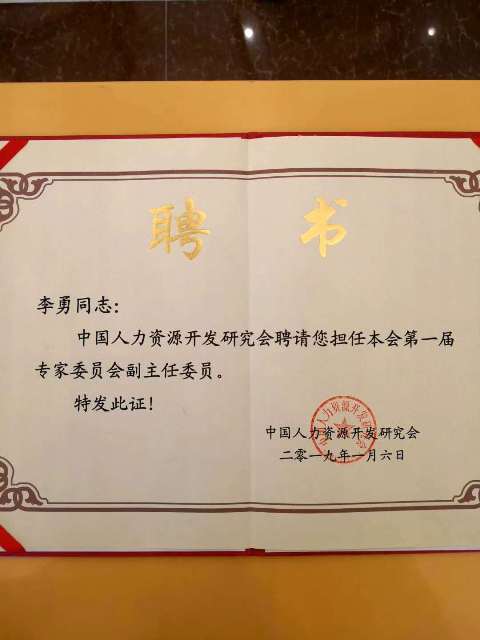 聘 书
李勇同志：
中国人力资源开发研究会聘请您担任本会第一届
专家委员会副主任委员。
特发此证！
中国人力资源开发研究会
二零一九年一月六日
中国人力资源开发研究会